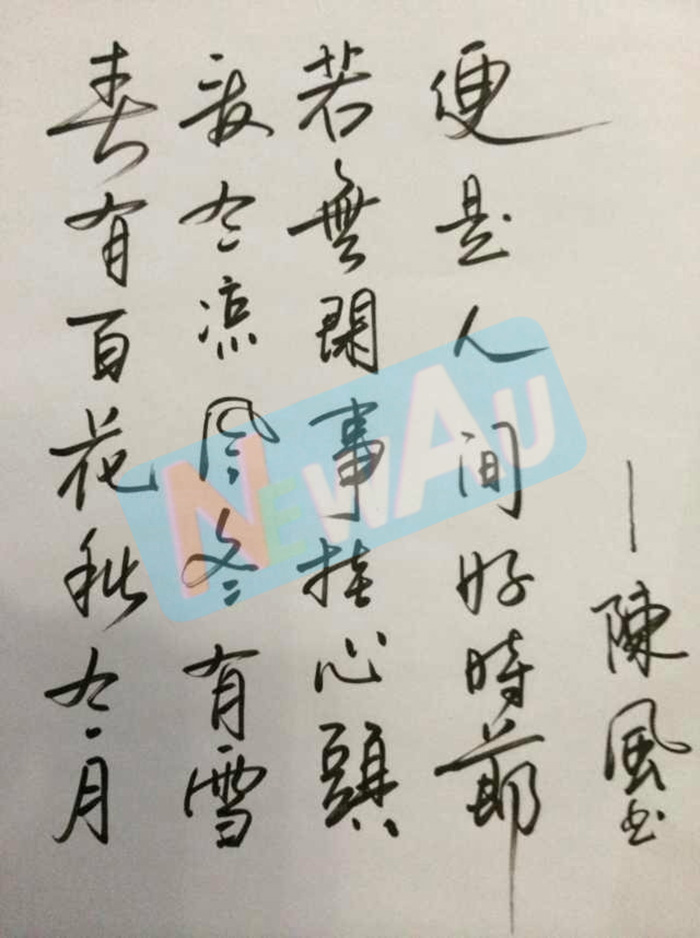 春有百花秋有月
夏有凉风冬有雪
若無閑事挂心頭
便是人间好時節
—陳風书
NEWAU